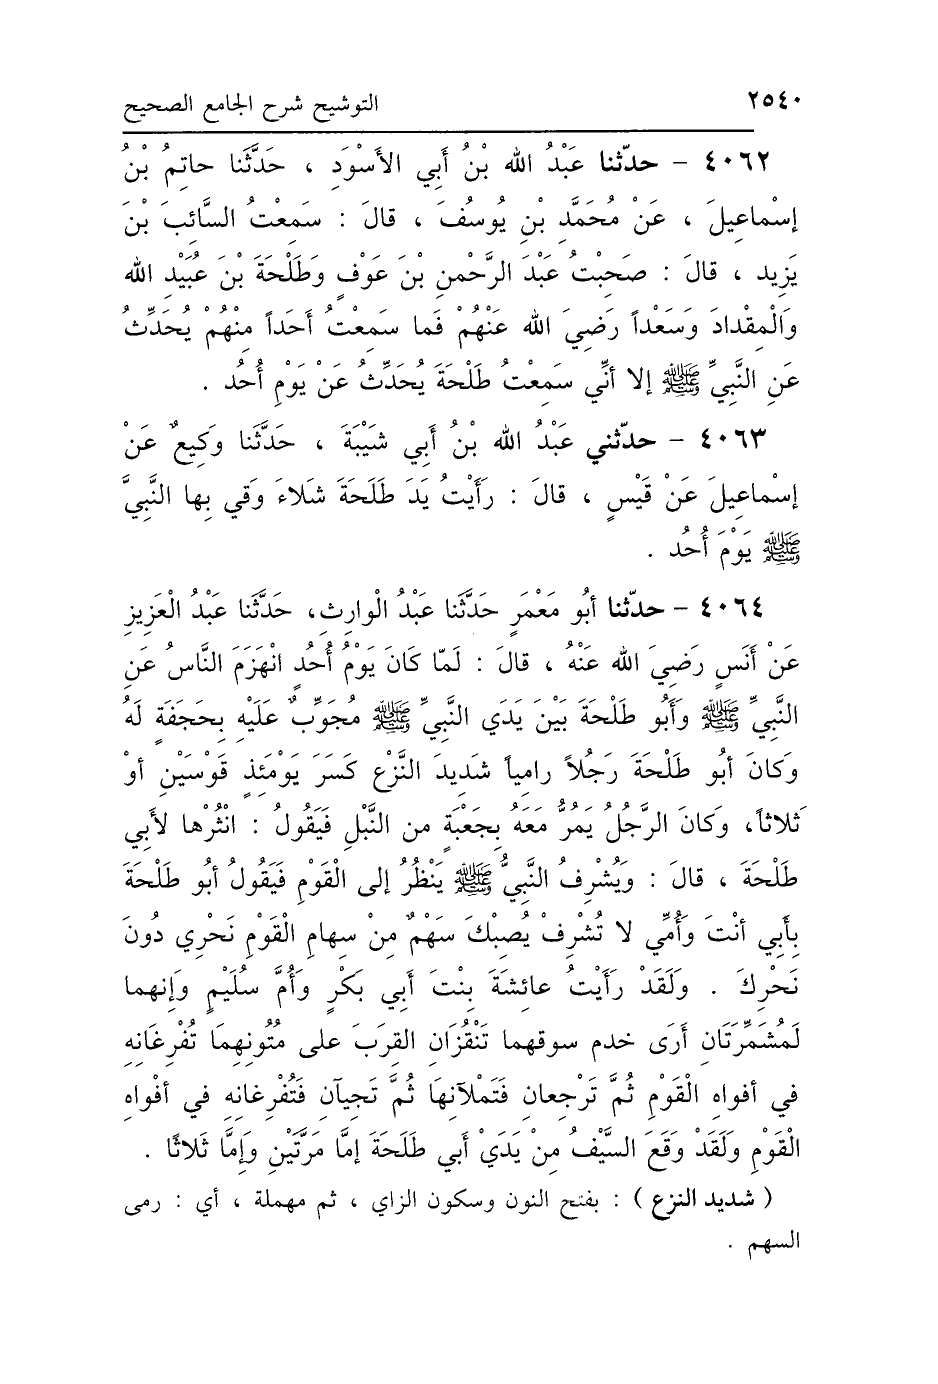 ٢٥٤٠ التوشيح شرح الجامع الصحيح
٤٠٦٢ - حدّثنا عَبْدُ الله بْنُ أَبي الأَسْوَدِ ، حَدَّثَنا حاتِمُ بْنُ
إسْماعِيلَ ، عَنْ مُحَمَّدِ بْنِ يُوسُفَ ، قالَ : سَمِعْتُ السَّائِبَ بْنَ
يَزِيد ، قالَ : صَحِبْتُ عَبْدَ الرَّحْمنِ بْنَ عَوْفٍ وَطَلْحَةَ بْنَ عُبَيْدِ الله
وَالْمِقْدادَ وَسَعْداً رَضِيَ الله عَنْهُمْ فَما سَمِعْتُ أَحَداً مِنْهُمْ يُحَدِّثُ
عَنِ النَّبِيِّ ﷺ إلا أنِّي سَمِعْتُ طَلْحَةَ يُحَدِّثُ عَنْ يَوْمِ أُحُد .
٤٠٦٣ - حدّثني عَبْدُ الله بْنُ أَبي شَيْبَةَ ، حَدَّثَنا وَكِيعٌ عَنْ
إسْماعِيلَ عَنْ قَيْسٍ ، قالَ : رَأَيْتُ يَدَ طَلَحَةَ شَلاءَ وَقي بِها النَّبِيَّ
ﷺ يَوْمَ أُحُد .
٤٠٦٤ - حدّثنا أبُو مَعْمَرٍ حَدَّثَنا عَبْدُ الْوارِثِ، حَدَّثَنا عَبْدُ الْعَزِيزِ
عَنْ أَنَسٍ رَضِيَ الله عَنْهُ ، قالَ : لَمّا كَانَ يَوْمُ أُحُدٍ انْهَزَمَ النَّاسُ عَنِ
النَّبِيِّ ﷺ وأَبُو طَلْحَةَ بَيْنَ يَدَيِ النَّبِيِّ ﷺ مُجَوِّبٌ عَلَيْهِ بِحَجَفَةٍ لَهُ
وَكانَ أبُو طَلْحَةَ رَجُلاً رامِياً شَدِيدَ النَّزْعِ كَسَرَ يَوْمَئِذٍ قَوْسَيْنِ أوْ
ثَلاثاً، وَكانَ الرَّجُلُ يَمُرُّ مَعَهُ بِجَعْبَةٍ مِن النَّبْلِ فَيَقُولُ : انْثُرْها لأَبِي
طَلْحَةَ ، قالَ : وَيُشْرِفُ النَّبِيُّ ﷺ يَنْظُرُ إلى الْقَوْمِ فَيَقُولُ أبُو طَلْحَةَ
بِأَبِي أنْتَ وَأُمِّي لا تُشْرِفْ يُصِبْكَ سَهْمٌ مِنْ سِهامِ الْقَوْمِ نَحْرِي دُونَ
نَحْرِكَ . وَلَقَدْ رَأَيْتُ عائِشَةَ بِنْتَ أبي بَكْرٍ وَأُمَّ سُلَيْمٍ وَإنهما
لَمُشَمِّرَتَانِ أرَى خدم سوقهما تَنْقُزَانِ القرَبَ على مُتُونِهِمَا تُفْرِغَانِهِ
فِي أفواهِ الْقَوْمِ ثُمَّ تَرْجعانِ فَتَمْلآنِهَا ثُمَّ تَجيآنِ فَتُفْرِغانِهِ في أفْواهِ
الْقَوْمِ وَلَقَدْ وَقَعَ السَّيْفُ مِنْ يَدَيْ أبي طَلَحَةَ إمَّا مَرَّتَيْنِ وَإمَّا ثَلاثًا .
( شديد النزع ) : بفتح النون وسكون الزاي ، ثم مهملة ، أي : رمى
السهم .